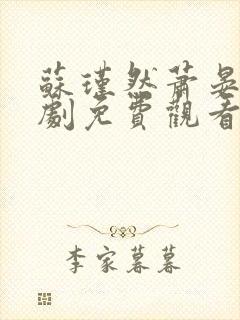 蘇瑾然蕭晏
劇免費觀看
李家暮暮